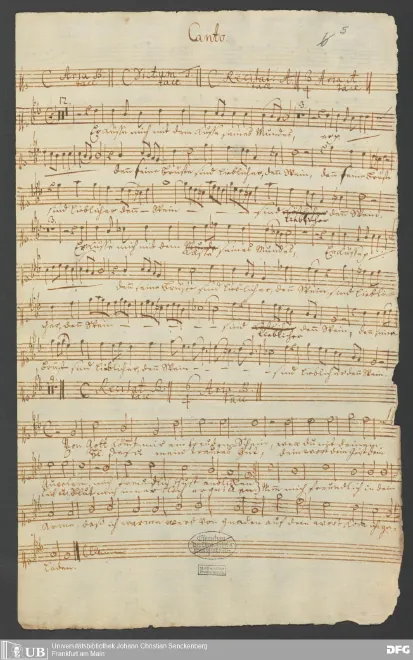 Canto.
5
C Aria B tacet || C Dictum tacet || C Recitat: A tacet || Aria A tacet
12.
Er küsse mich mit dem Kusse seines Mundes,
3.
denn seine Brüste sind lieblicher, denn Wein, denn seine Brüste
sind lieblicher denn - Wein - - - sind lieblicher denn Wein.
3.
Er küsse mich mit dem Kusse seines Mundes,
denn seine Brüste sind lieblicher, denn Wein, sind lieblicher, denn Wein - - - sind lieblicher denn Wein, denn seine
Brüste sind lieblicher, denn Wein - - - sind lieblicher denn Wein.
C Recitat B tacet || C Aria B tacet ||
Von Gott kömmt mir ein Freudenschein, wenn du mit deinen
Herr Jesu mein trautes Gut, dein Wort dein Geist dein
Äugelein mich freundlich thust anblicken
Leib und Blut mich innerlich erquicken Nimm mich freundlich in dein
Arme, daß ich warme werd von Gnaden auf dein Wort komm ich ge-
laden.
UB
Universitätsbibliothek Johann Christian Senckenberg
Frankfurt am Main
DFG